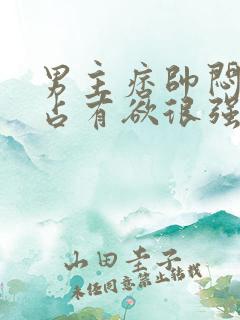 男主痞帅闷
占有欲很强
山田圭子
未经同意禁止转载